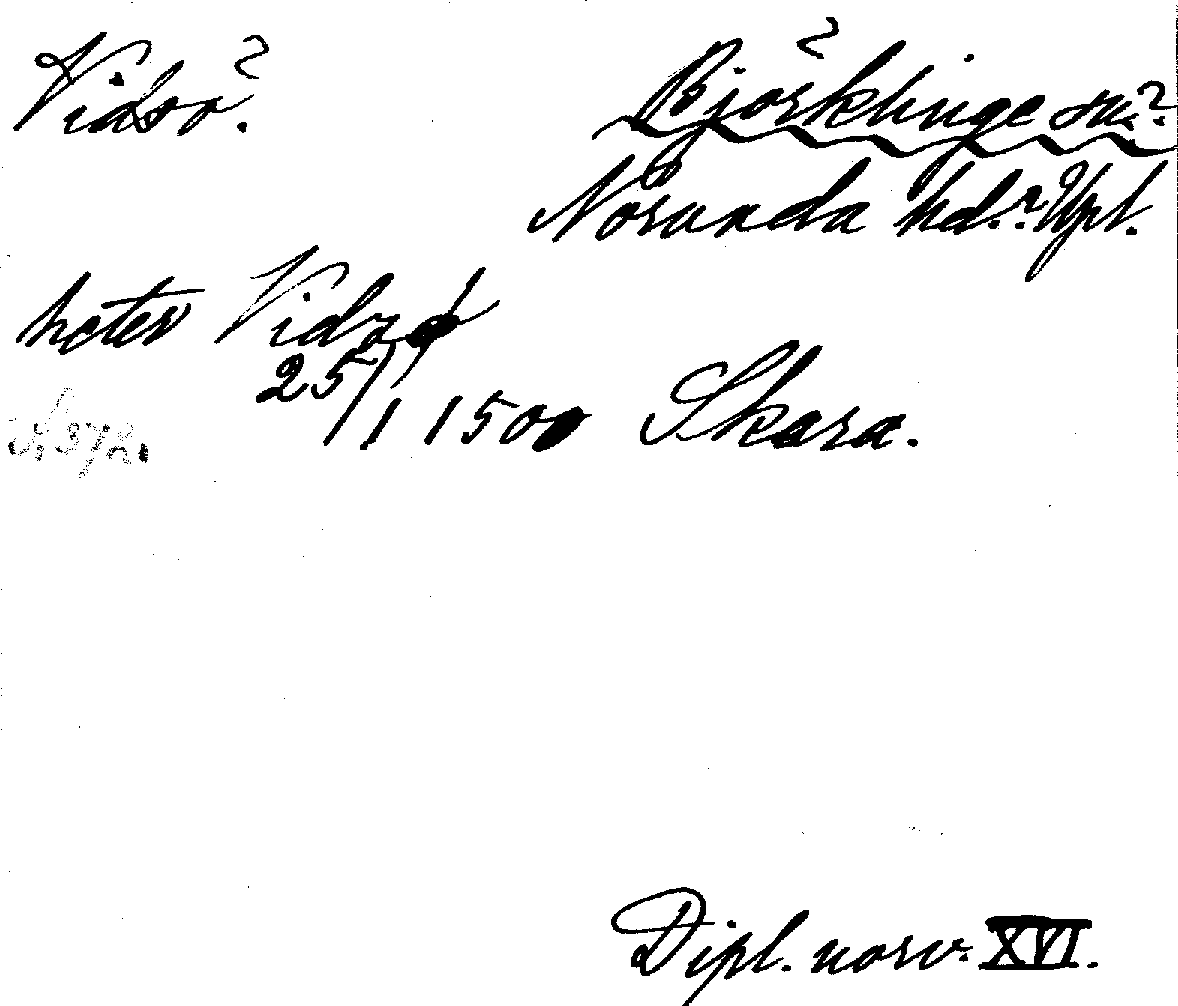 Vidsö.
Björklinge sn.
Norunda hd. Upl.
heter Vidzø
25/1 1500 Skara.
S. 372.
Dipl. norv. XVI.